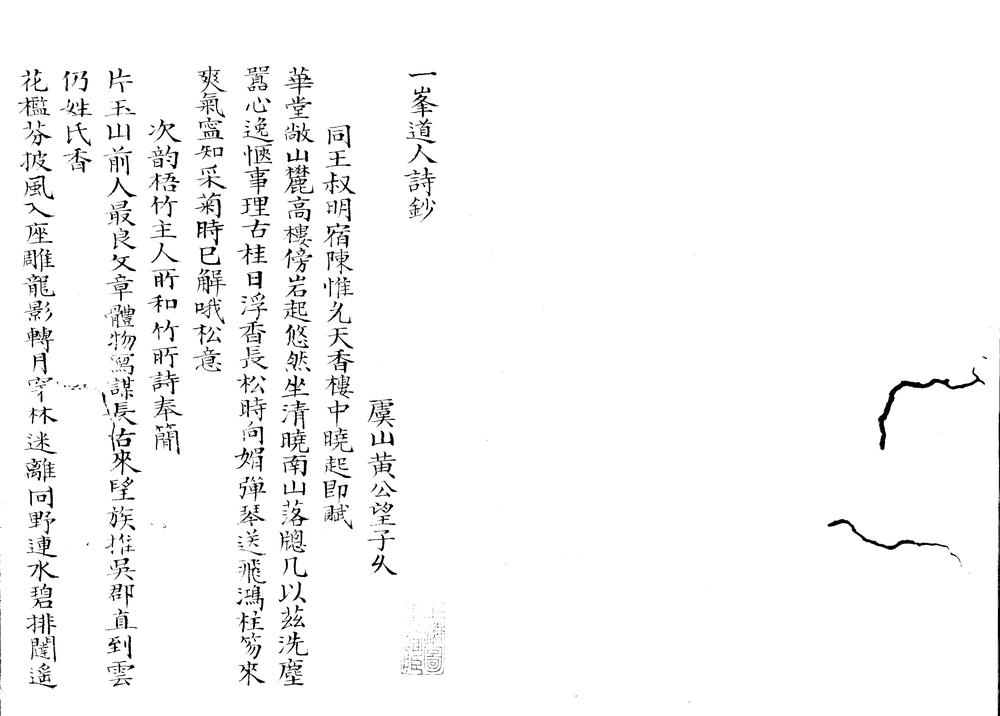 一峯道人詩鈔
虞山黃公望子久
同王叔明宿陳惟允天香樓中曉起即賦
華堂敞山麓高樓傍岩起悠然坐清曉南山落牕几以茲洗塵
囂心逸愜事理古桂日浮香長松時向媚彈琴送飛鴻柱笏來
爽氣寧知采菊時已解哦松意
次韵梧竹主人所和竹所詩奉簡
片玉山前人最良文章體物寫謀長古來望族推吳郡直到雲
仍姓氏香
花檻芬披風入座雕龍影轉月穿林迷離同野連水碧排闥遙